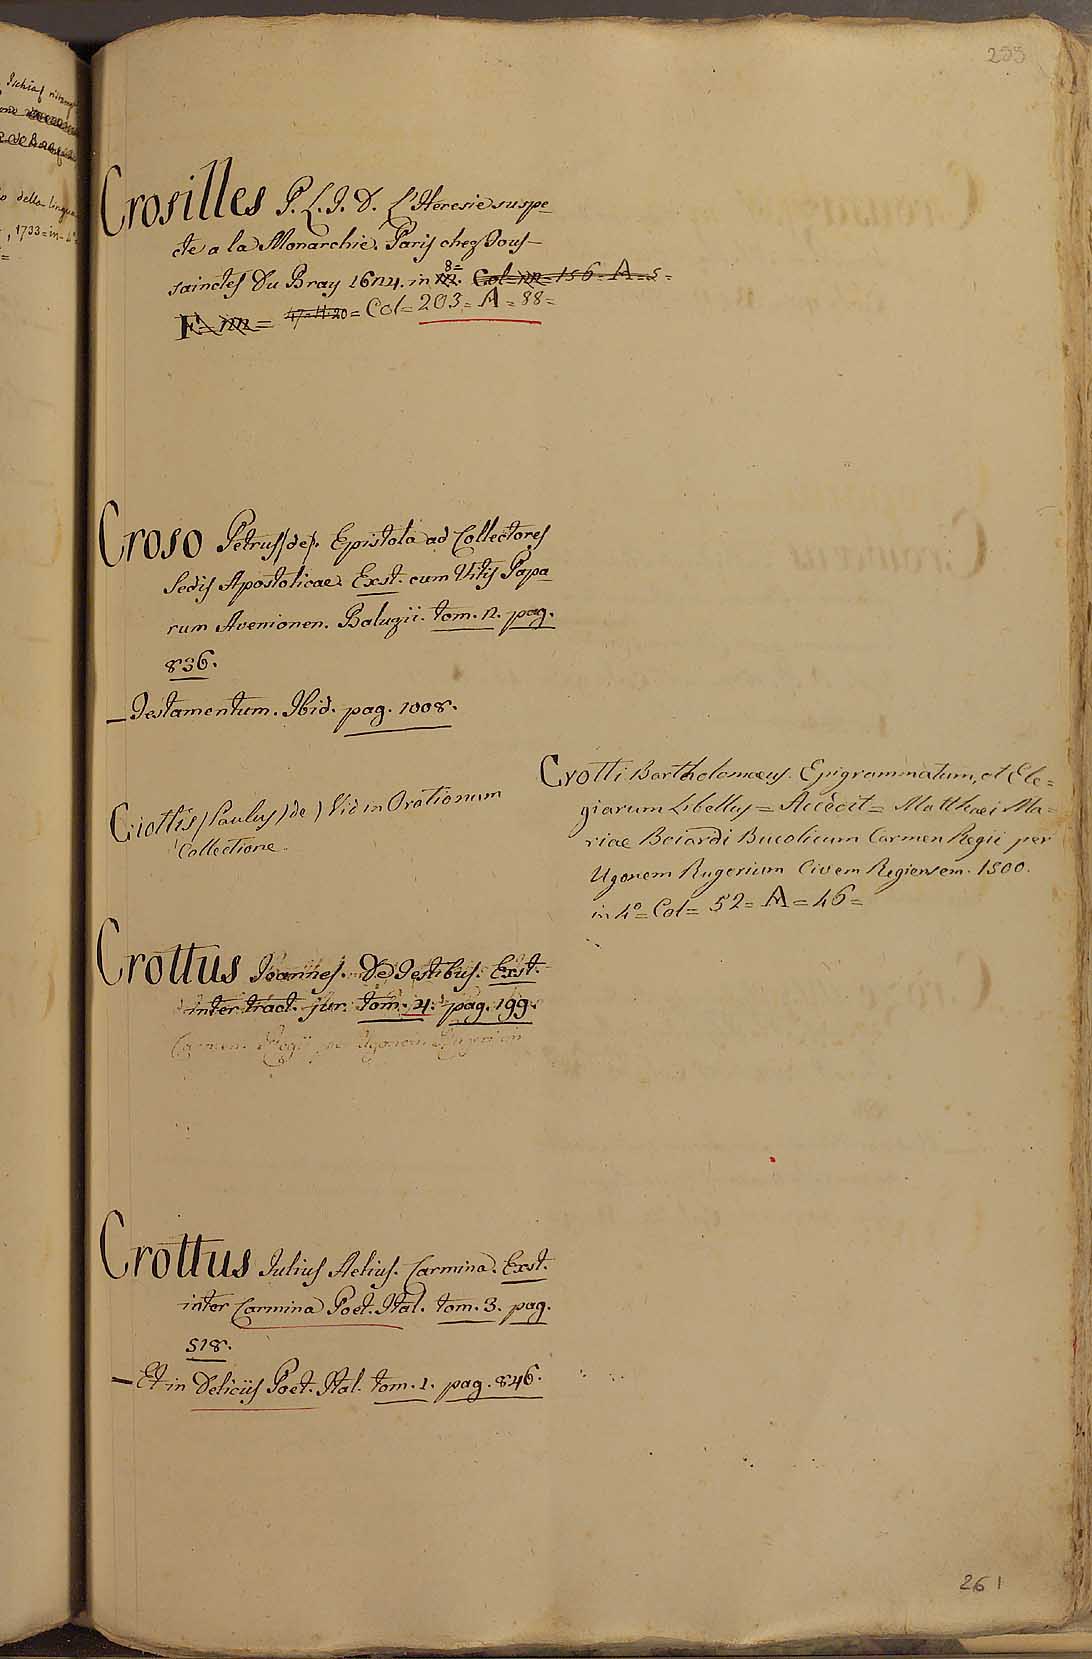 255
Crosilles P. L. J. D. L'Heresie suspe-
cte a la Monarchie. Paris chez Tous-
sainctes Du Bray 1624. in 8=
Col= 203= A= 88=
Croso Petrus (de). Epistola ad Collectores
Sedis Apostolicae. Exst. cum Vitis Papa
rum Avenionen. Baluzii. tom. 2. pag.
836.
— Testamentum. Ibid. pag. 1008.
Crottis (Paulus) de) Vid in Orationum
Collectione.
Crotti Bartholomaeus. Epigrammatum, et Ele=
giarum Libellus= Accedit= Matthaei Ma=
riae Boiardi Bucolicum Carmen Regii per
Ugonem Rugerium Civem Regiensem. 1500.
in 4.º= Col= 52= A= 46=
Crottus Joannes. De Testibus. Exst.
inter tract. jur. tom. 4. pag. 199.
Carmen. Regii per Ugonem Rugerium
Crottus Julius Aelius. Carmina. Exst.
inter Carmina Poet. Ital. tom. 3. pag.
518.
— Et in Deliciis Poet. Ital. tom. 1. pag. 846.
261